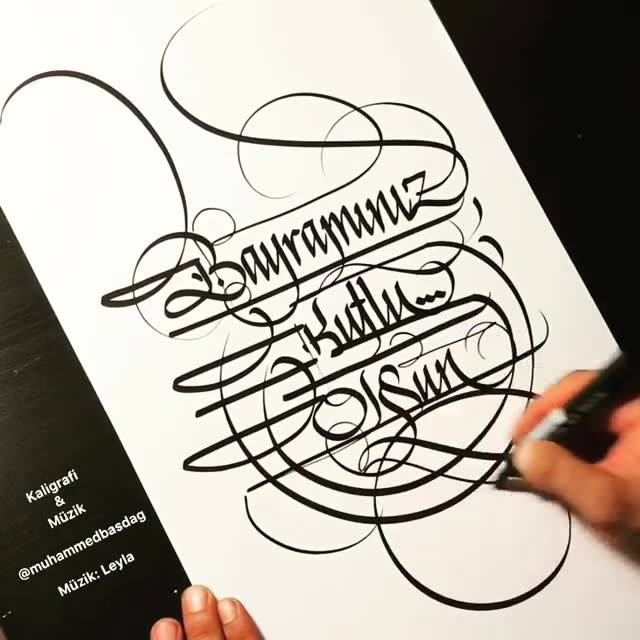 Bayramınız
Kutlu...
Olsun
Kaligrafi
&
Müzik
@muhammedbasdag
Müzik: Leyla